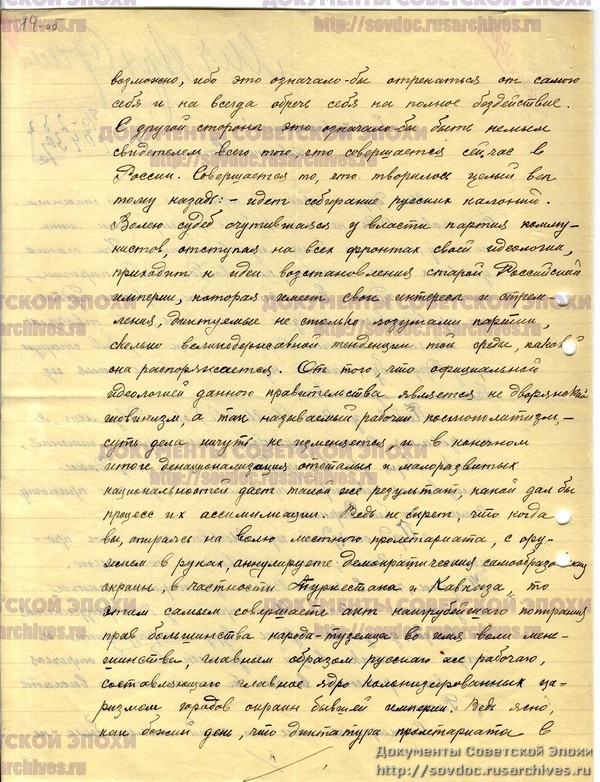 14-об
возможно, ибо это означало-бы отрекаться от самого
себя и на всегда обречь себя на полное бездействие.
С другой стороны это означало-бы быть немым
свидетелем всего того, что совершается сейчас в
России. Совершается то, что творилось целый век
тому назад: – идет собирание русских колоний.
Волею судеб очутившаяся у власти партия комму-
нистов, отступая на всех фронтах своей идеологии,
приходит к идеи возстановления старой Российской
империи, которая имеет свои интересы и стрем-
ления, диктуемые не столько лозунгами партии,
сколько великодержавной тенденции той среды, какой
она распоряжается. От того, что официальной
идеологией данного правительства является не дворянский
шовинизм, а так называемый рабочий космополитизм, –
суть дела ничуть не изменяется, и в конечном
итоге денационализация отсталых и малоразвитых
национальностей дает такой же результат, какой дал бы
процесс их ассимиляции. Ведь не секрет, что когда
вы, опираясь на волю местного пролетариата, с ору-
жием в руках аннулируете демократическия самообразования
окраин, в частности Туркестана и Кавказа, то
этим самым совершаете акт наигрубейшаго попирания
прав большинства народа-туземца во имя воли мень-
шинства, главным образом русскаго же рабочаго,
составляющаго главное ядро колонизированных ца-
ризмом городов окраин бывшей империи. Ведь ясно,
как божий день, что диктатура пролетариата в
ДОКУМЕНТЫ СОВЕТСКОЙ ЭПОХИ
http://sovdoc.rusarchives.ru
Документы Советской Эпохи
http://sovdoc.rusarchives.ru